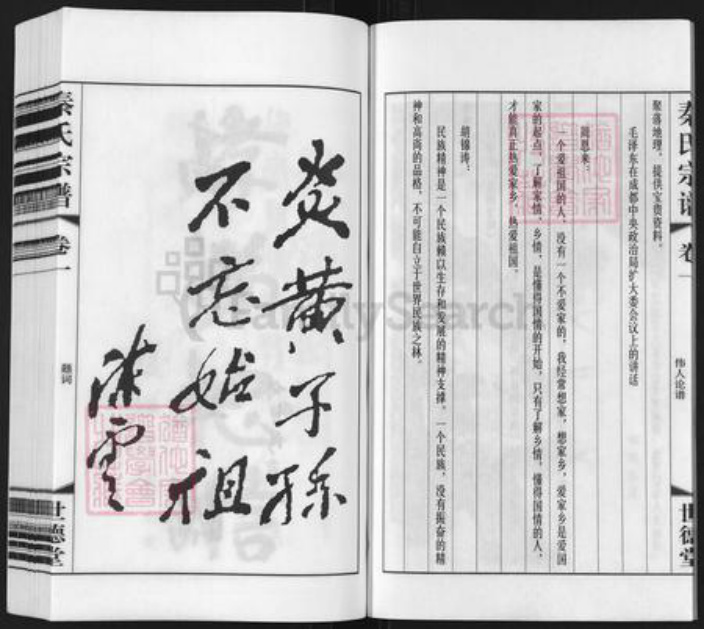 秦氏宗谱 卷一
伟人论谱
世德堂
聚落地理，提供宝贵资料。
毛泽东在成都中央政治局扩大委会议上的讲话
周恩来：
一个爱祖国的人，没有一个不爱家的，我经常想家，想家乡，爱家乡是爱国
家的起点，了解家情、乡情，是懂得国情的开始，只有了解乡情，懂得国情的人，
才能真正热爱家乡，热爱祖国。
胡锦涛：
民族精神是一个民族赖以生存和发展的精神支撑。一个民族，没有振奋的精
神和高尚的品格，不可能自立于世界民族之林。
炎黄子孙
不忘始祖
陈云
秦氏宗谱 卷一
题词
世德堂
FamilySearch